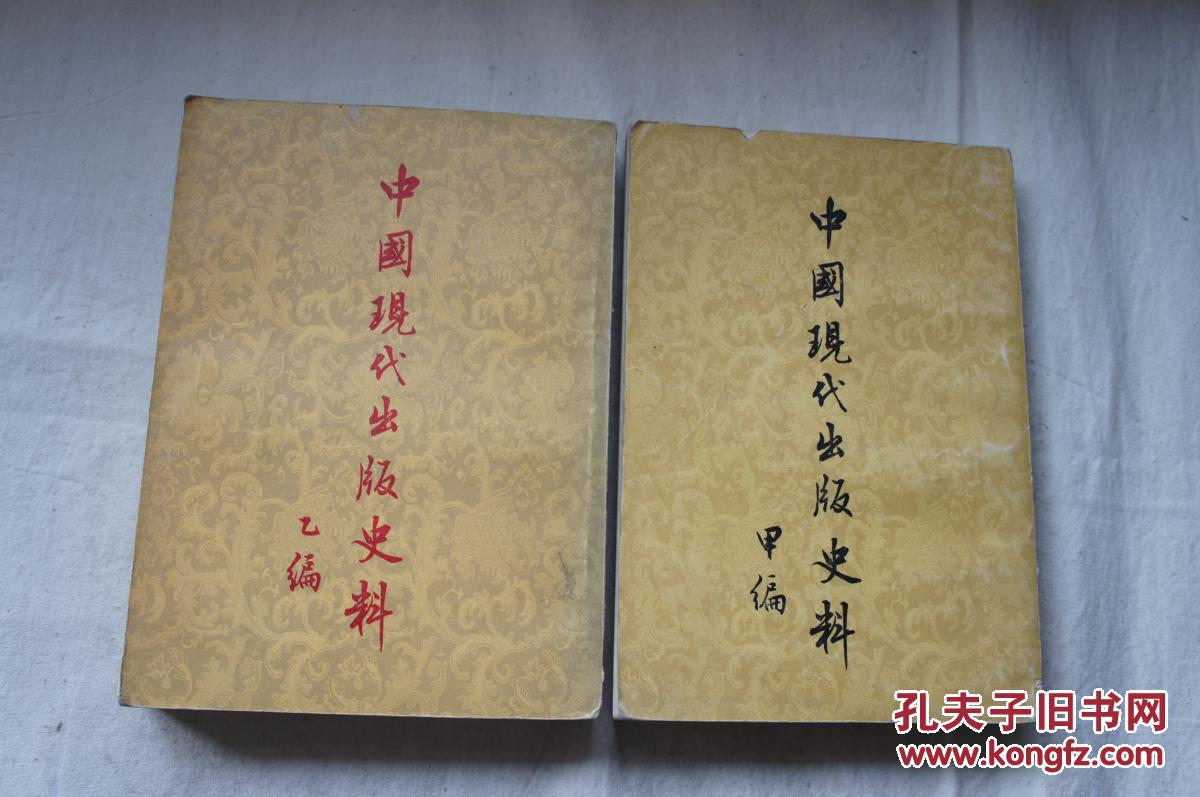 中國現代出版史料
乙編
中國現代出版史料
甲編
孔夫子旧书网
www.kongfz.com